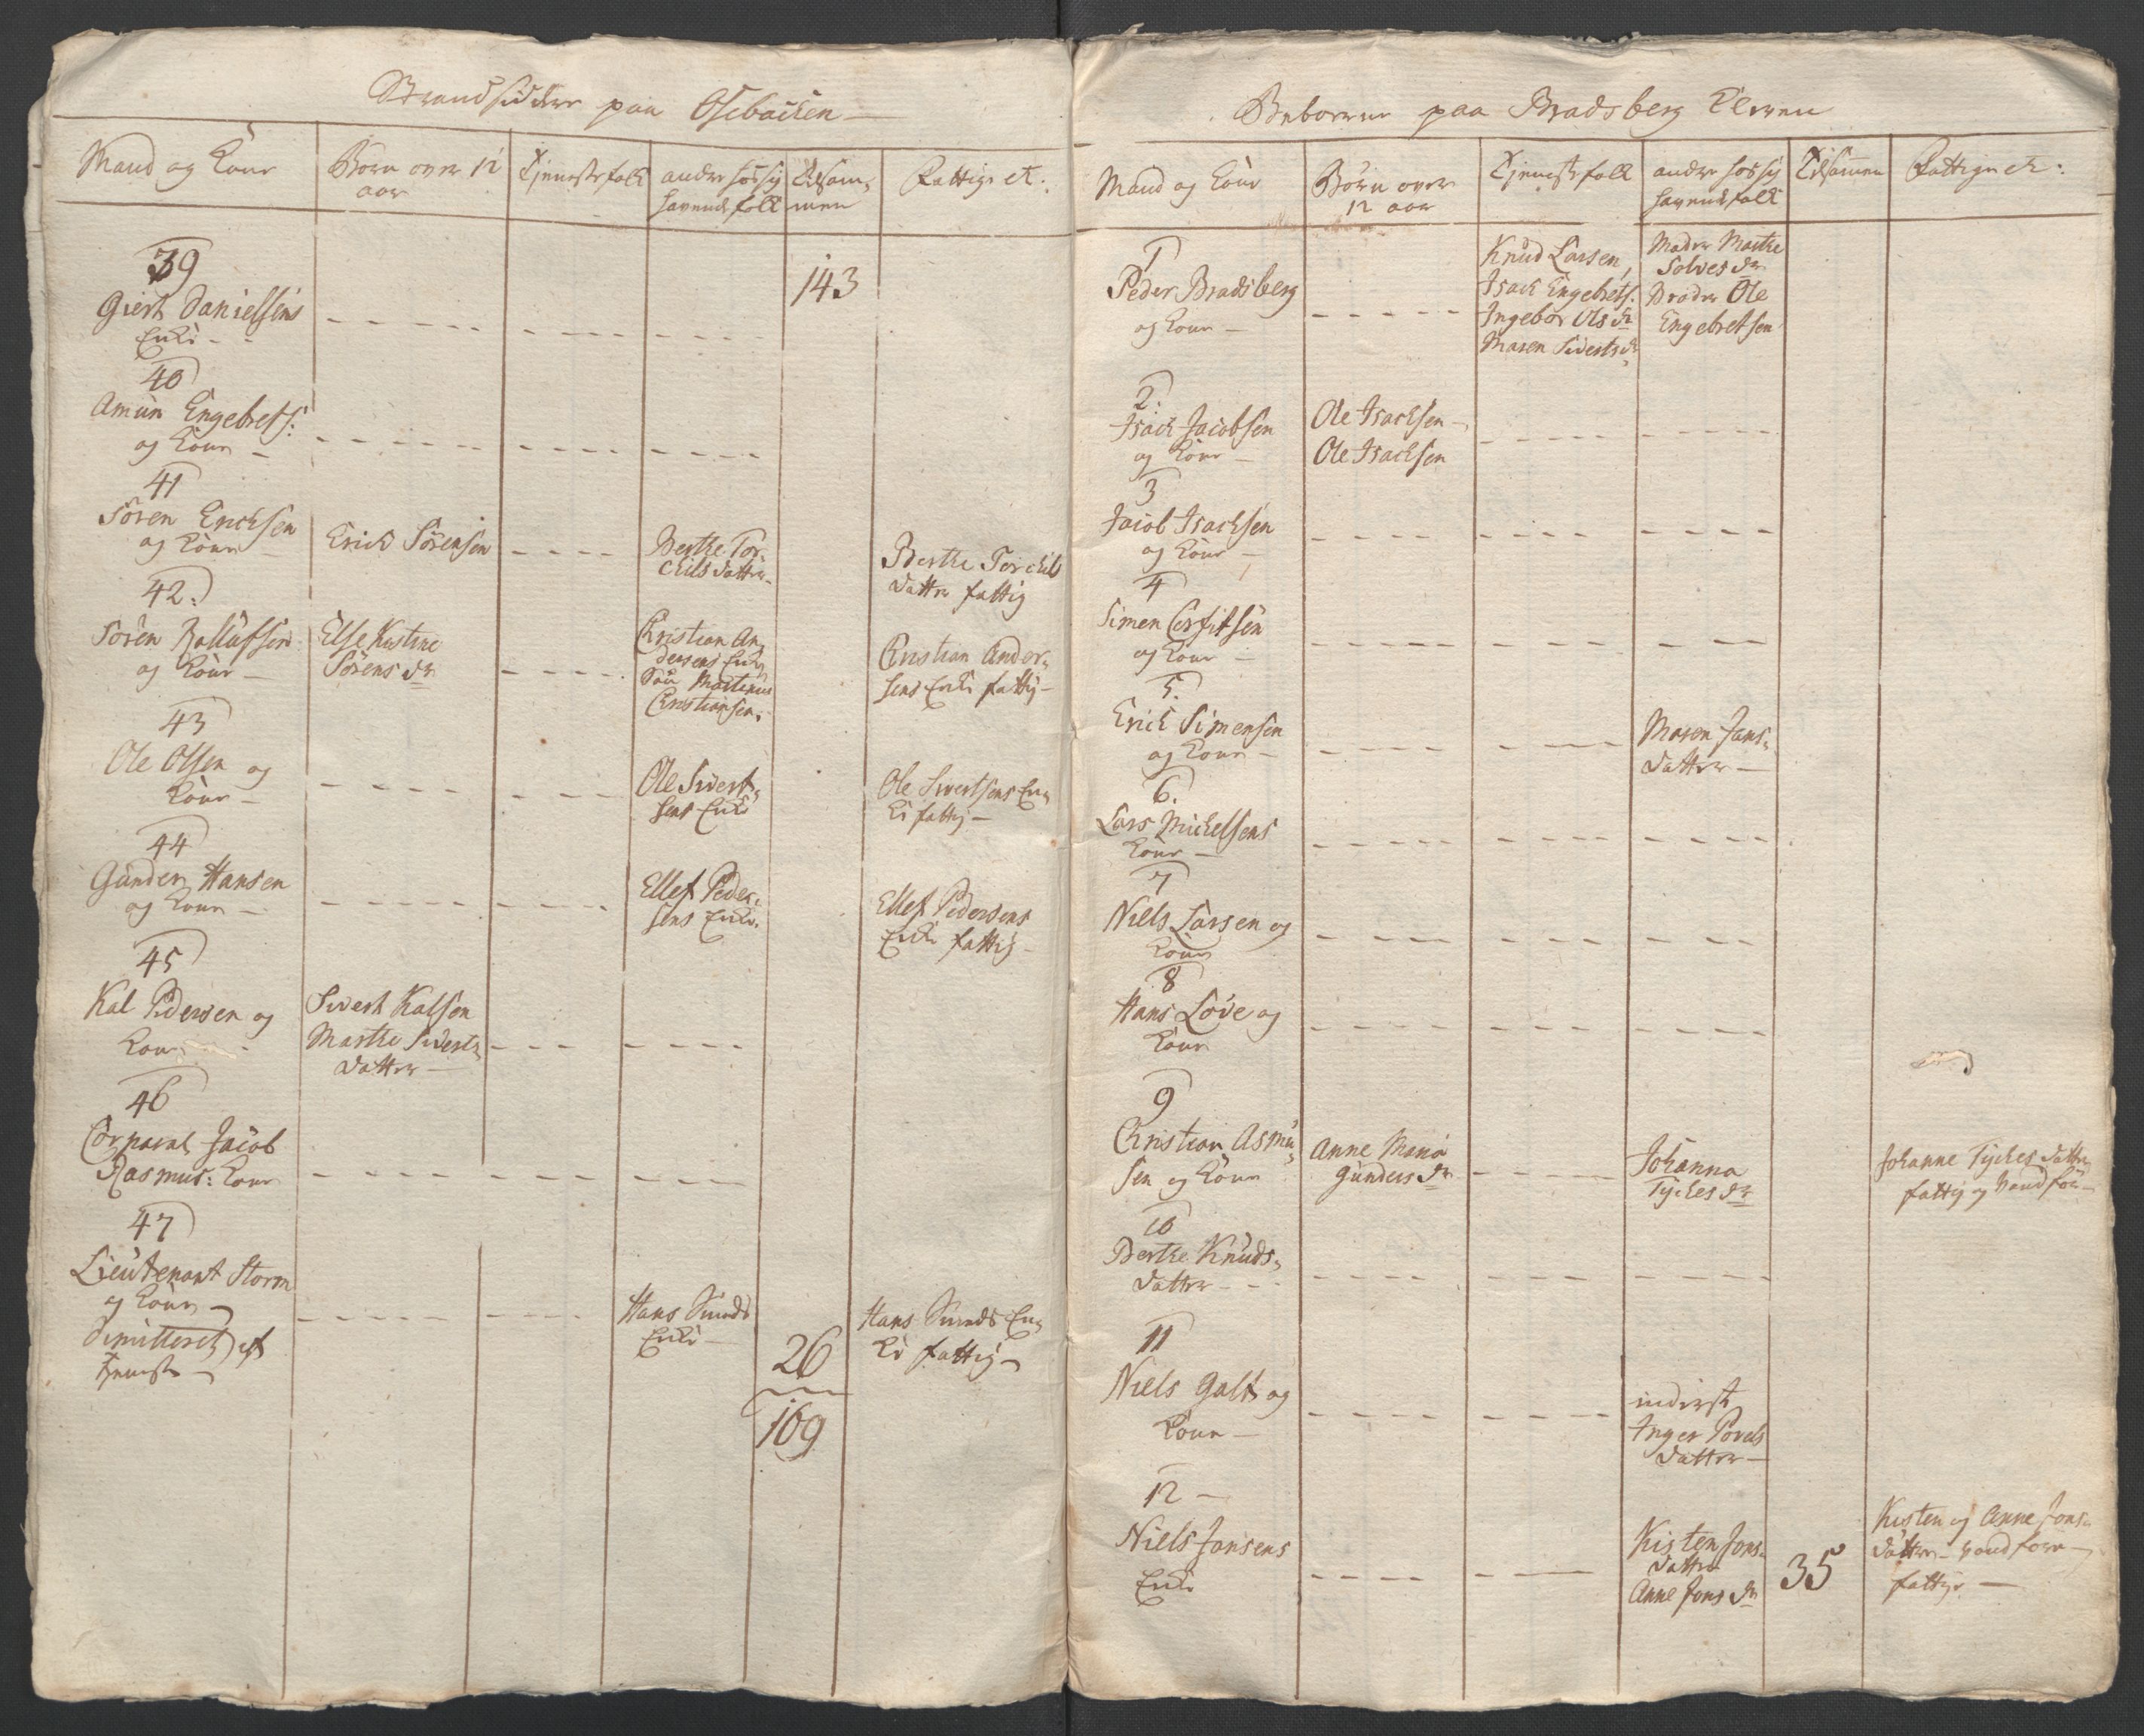 Strandsidder paa Osebacken
Mand og Kone
Børn over 12
aar
Tjenestefolk
andre hos sig
havende folk
Tilsam-
men
Fattige etc:
143
39
Giert Danielsens
Enke -
40
Amun Engebrets:
og Kone -
41
Søren Erichsen
og Kone
Erick Sørensen
Berthe Tor-
chils datter-
Berthe Torchils
datter fattig
42:
Søren Rollufsen
og Kone -
Else Kistine
Sørens dr
Christian An-
dersens Enke
Søn Martinus
Christiansen.
Christian Ander-
sens Enke fattig -
43
Ole Olsen og
Kone -
Ole Sivert-
sens Enke
Ole Sivertsens En-
ke fattig -
44
Gunder Hansen
og Kone -
Ellef Peder-
sens Enke.
Ellef Pedersens
Enke fattig -
45
Kal Pedersen og
Kone
Sivert Kalsen
Marthe Siverts-
datter -
46
Corporal Jacob
Rasmus: Kone
47
Lieutenant Storm
og Kone -
Dimitteret af
tjeneste -
Hans Sunds
Enke -
26
Hans Sunds En-
ke fattig -
169
Beboerne paa Bradsberg Elven
Mand og Kone
Børn over
12 aar
Tjenestefolk
andre hos sig
havende folk
Tilsamen
Fattige etc:
1
Peder Bradsberg
og Kone -
Knud Larsen,
Isach Engebrets:
Ingebor Ols dr
Maren Siverts dr
Moder Marthe
Solves dr
Broder Ole
Engebretsen
2:
Isach Jacobsen
og Kone -
Ole Isachsen -
Ole Isachsen
3
Jacob Isachsen
og Kone -
4
Simen Corfitsen
og Kone -
5.
Erick Simensen
og Kone -
Maren Jans-
datter -
6.
Lars Mickelsens
Kone -
7
Niels Larsen og
Kone
8
Hans Løve og
Kone
9
Christian Asmu-
sen og Kone
Anne Maria
Gunders dr
Johanna
Tyches dr
Johanne Tyches datter
fattig og vandfør -
10
Berthe Knuds-
datter -
11
Niels Galt og
Kone -
inderst
Inger Povels
datter -
12 -
Niels Jansens
Enke
Kisten Jons-
datter
Anne Jons dr
35
Kisten og Anne Jons-
døttre - vandføre -
fattige -